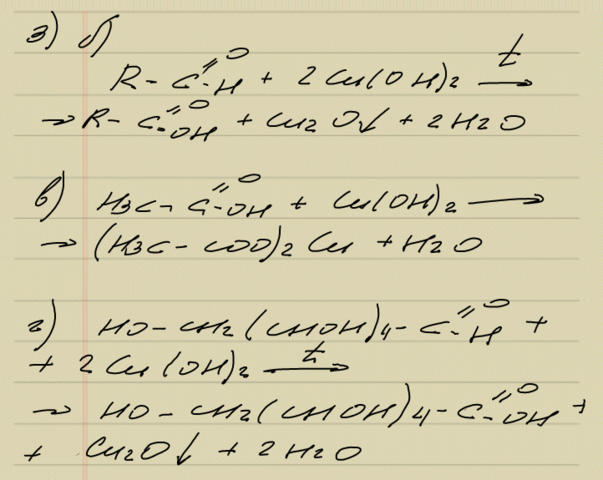 3) б)
R-C=O-H + 2Cu(OH)2 t→
→ R-C=O-OH + Cu2O↓ + 2H2O
в) H3C-C=O-OH + Cu(OH)2 →
→ (H3C-COO)2Cu + H2O
г) HO-CH2(CHOH)4-C=O-H +
+ 2Cu(OH)2 t→
→ HO-CH2(CHOH)4-C=O-OH +
+ Cu2O↓ + 2H2O